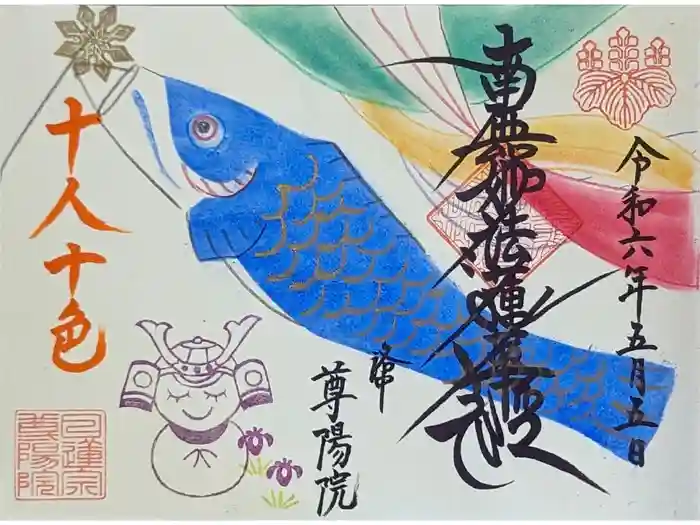 令和六年五月五日
南無妙法蓮華経
尊陽院
十人十色
日蓮宗
尊陽院